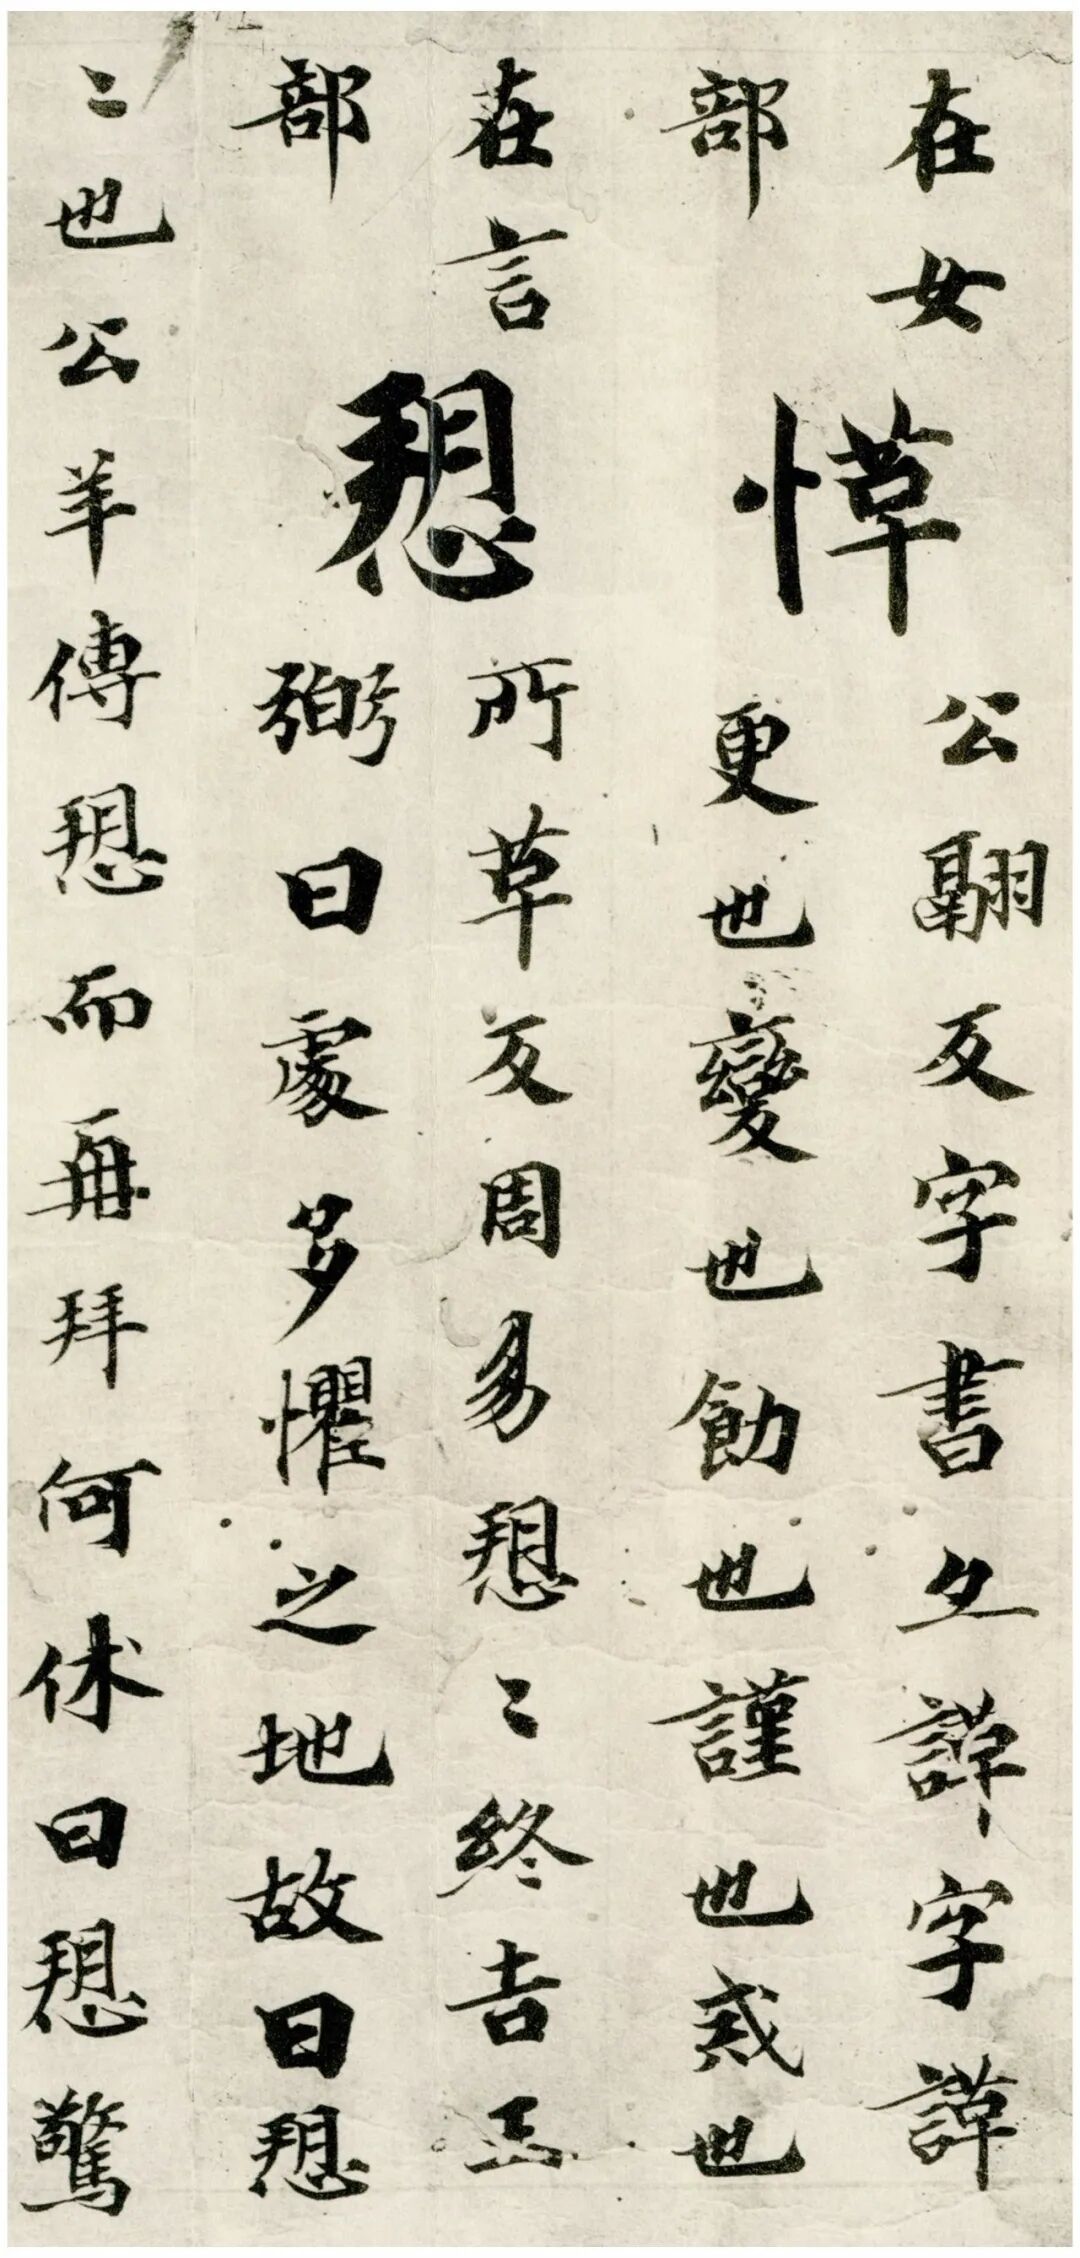 在女
部
愅
公翮反字書亦諽字諽
更也變也飭也謹也戒也
在言
部
愬
所革反周易愬〻終吉王
弼曰處多懼之地故曰愬
〻也公羊傳愬而再拜何休曰愬驚